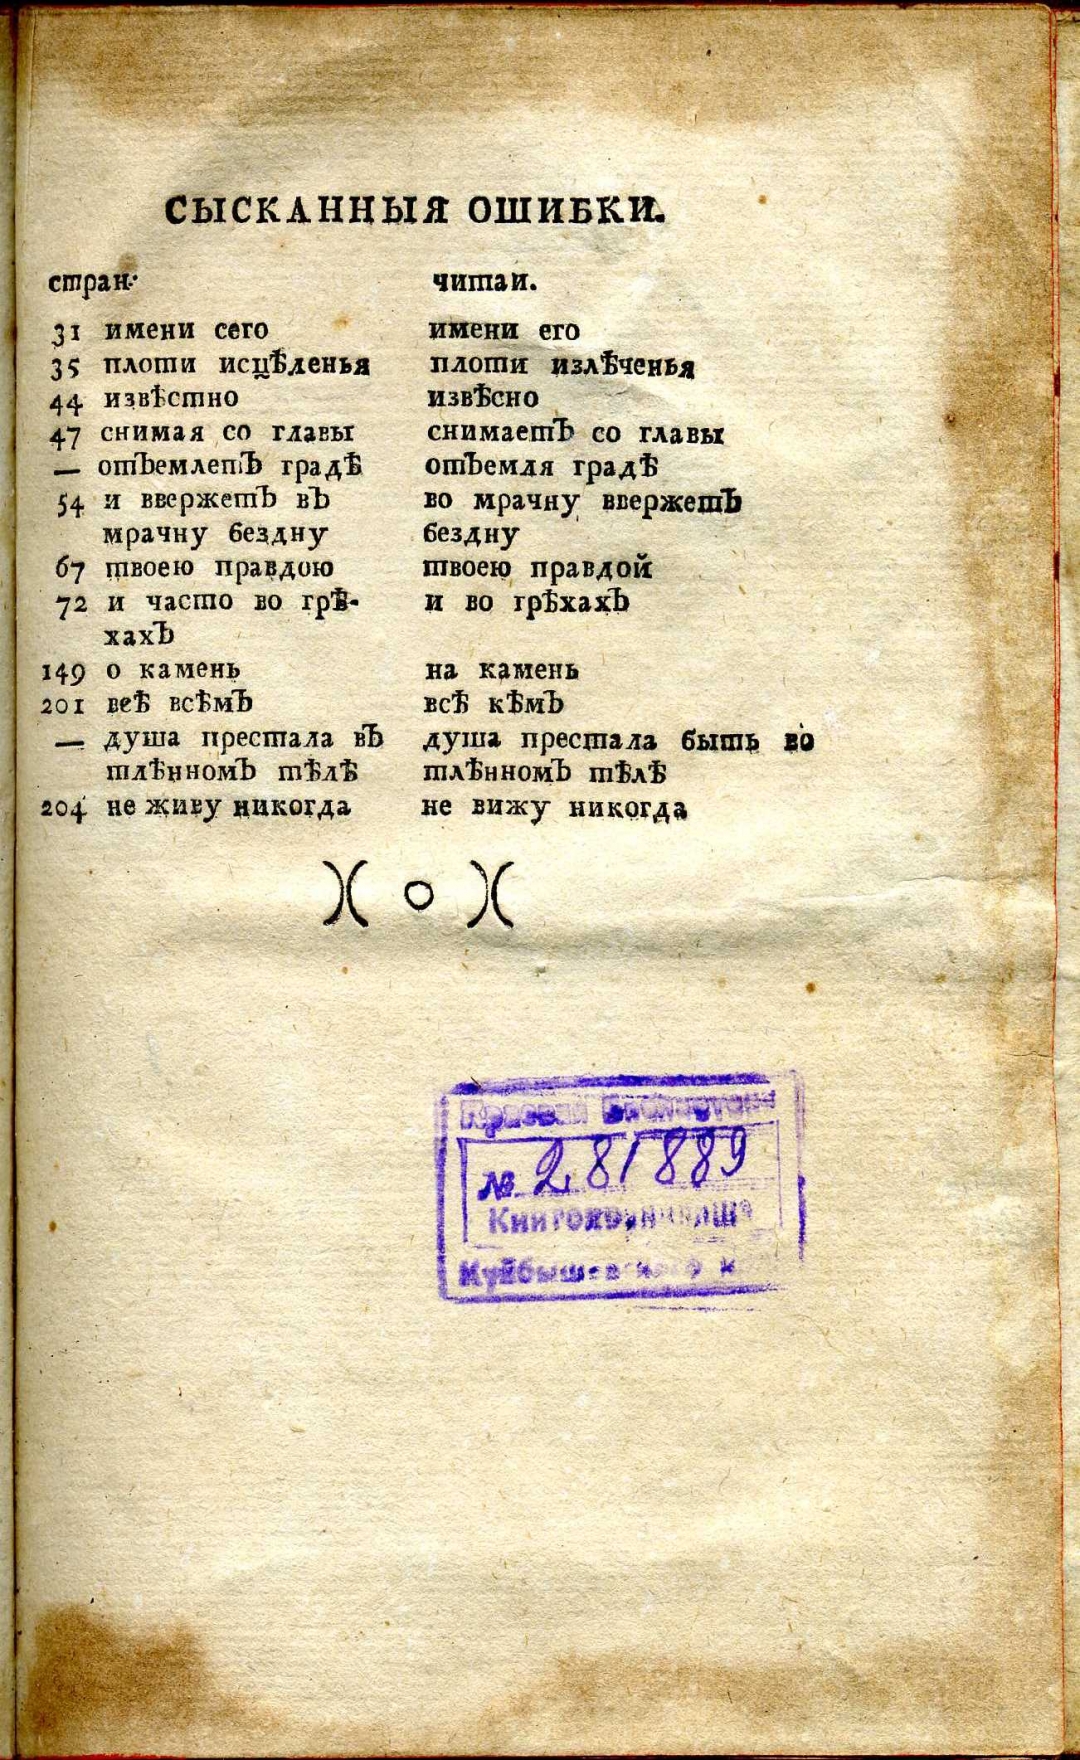 СЫСКАННЫЯ ОШИБКИ.
стран: читаи.
31 имени сего имени его
35 плоти исцѣленья плоти излѣченья
44 извѣстно извѣсно
47 снимая со главы снимаетъ со главы
— отъемлетъ градѣ отъемля градѣ
54 и ввержетъ въ во мрачну ввержетъ
мрачну бездну бездну
67 твоею правдою твоею правдой
72 и часто во грѣ- и во грѣхахъ
хахъ
149 о камень на камень
201 всѣ всѣмъ всѣ кѣмъ
— душа престала въ душа престала быть во
тлѣнномъ тѣлѣ тлѣнномъ тѣлѣ
204 не живу никогда не вижу никогда
)( o )(
Краевая
№ 281889
Книгохранилища
Куйбышевского